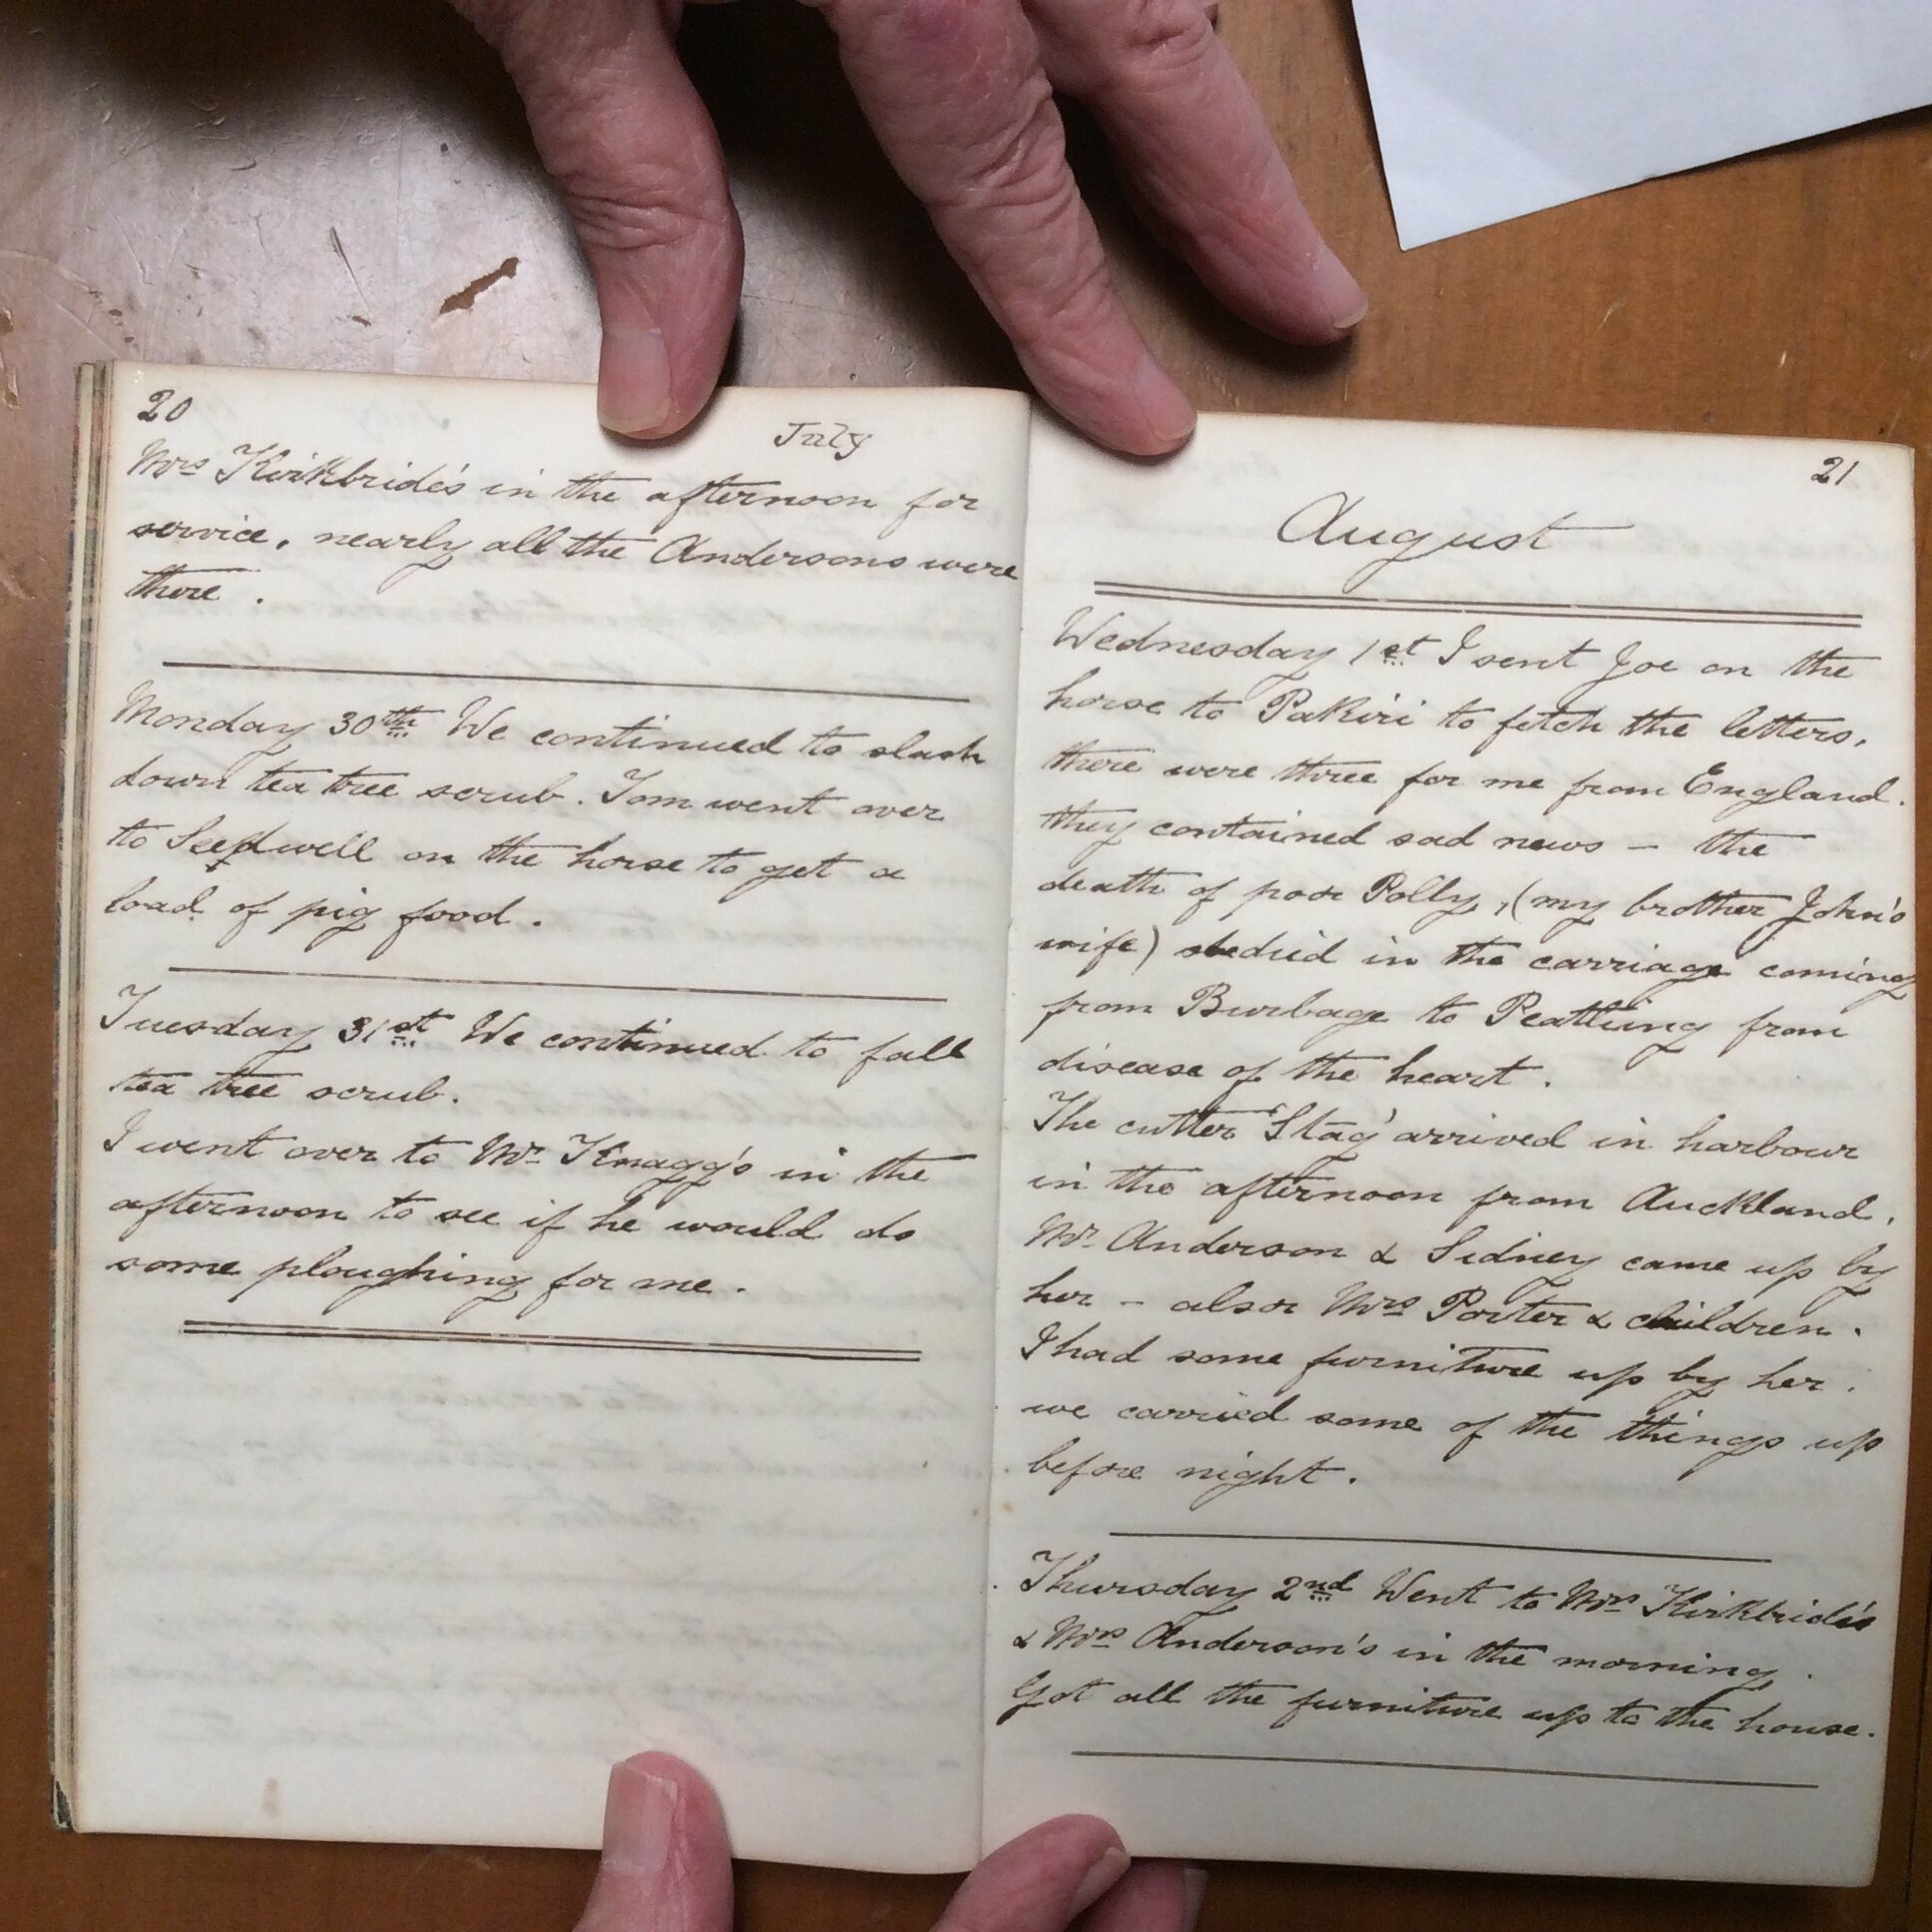 20
July
Mrs Kirkbride's in the afternoon for
service, nearly all the Andersons were
there.
Monday 30th We continued to slash
down tea tree scrub. Tom went over
to on the horse to get a
load of pig food.
Tuesday 31st We continued to fall
tea tree scrub.
I went over to Mr Knagg's in the
afternoon to see if he would do
some ploughing for me.
21
August
Wednesday 1st I sent Joe on the
horse to Pakiri to fetch the letters,
there were three for me from England.
they contained sad news - the
death of poor Polly, (my brother John's
wife) she died in the carriage coming
from Burbage to Peatling from
disease of the heart.
The cutter 'Stag' arrived in harbour
in the afternoon from Auckland.
Mr Anderson & Sidney came up by
her - also Mrs Porter & children.
I had some furniture up by her.
we carried some of the things up
before night.
Thursday 2nd Went to Mrs Kirkbride's
& Mrs Anderson's in the morning.
Got all the furniture up to the house.